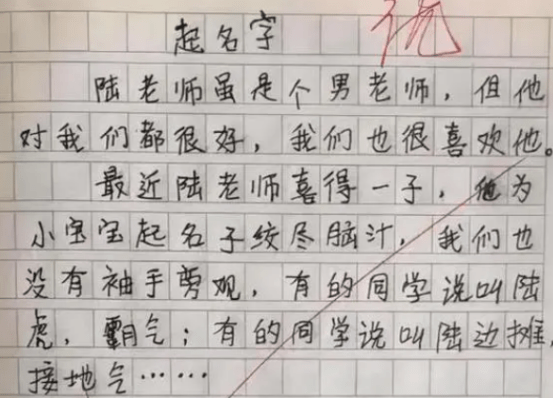 起名字 优
陆老师虽是个男老师，但他
对我们都很好，我们也很喜欢他。
最近陆老师喜得一子，他为
小宝宝起名子绞尽脑汁，我们也
没有袖手旁观，有的同学说叫陆
虎，霸气；有的同学说叫陆边摊，
接地气……